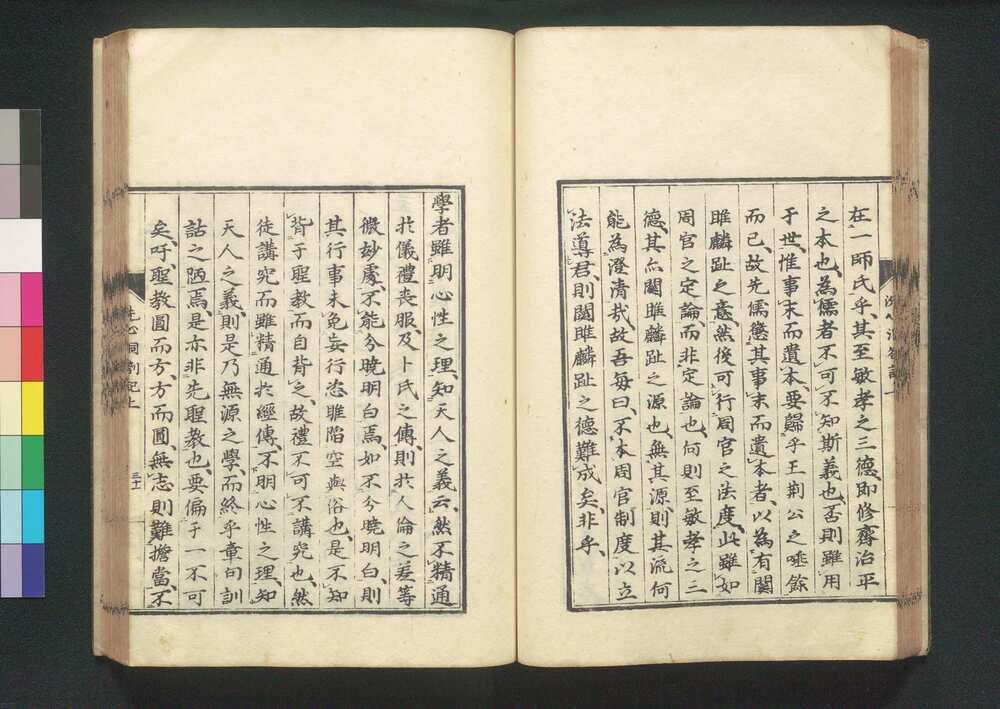 在一師氏乎、其至敏孝之三德、即修齊治平
之本也、為儒者不可不知斯義也、否則雖用
于世、惟事末而遺本、要歸乎王荊公之唾餘
而已、故先儒懲其事末而遺本者、以為有關
雎麟趾之意、然後可行周官之法度、此雖如
周官之定論、而非定論也、何則至敏孝之三
德、其亦關雎麟趾之源也、無其源、則其流何
能為澄清哉、故吾每曰、不本周官制度以立
法導君、則關雎麟趾之德難成矣、非乎、
學者雖明心性之理、知天人之義云、然不精通
於儀禮喪服、及卜氏之傳、則於人倫之差等
微妙處、不能分曉明白焉、如不分曉明白、則
其行事未免妄行恣睢陷空與俗也、是不知
背于聖教、而自背之、故禮不可不講究也、然
徒講究而雖精通於經傳、不明心性之理、知
天人之義、則是乃無源之學、而終乎章句訓
詁之陋焉、是亦非先聖教也、要偏于一不可
矣、吁聖教圓而方、方而圓、無志則難擔當、不
洗心洞劄記上
三十